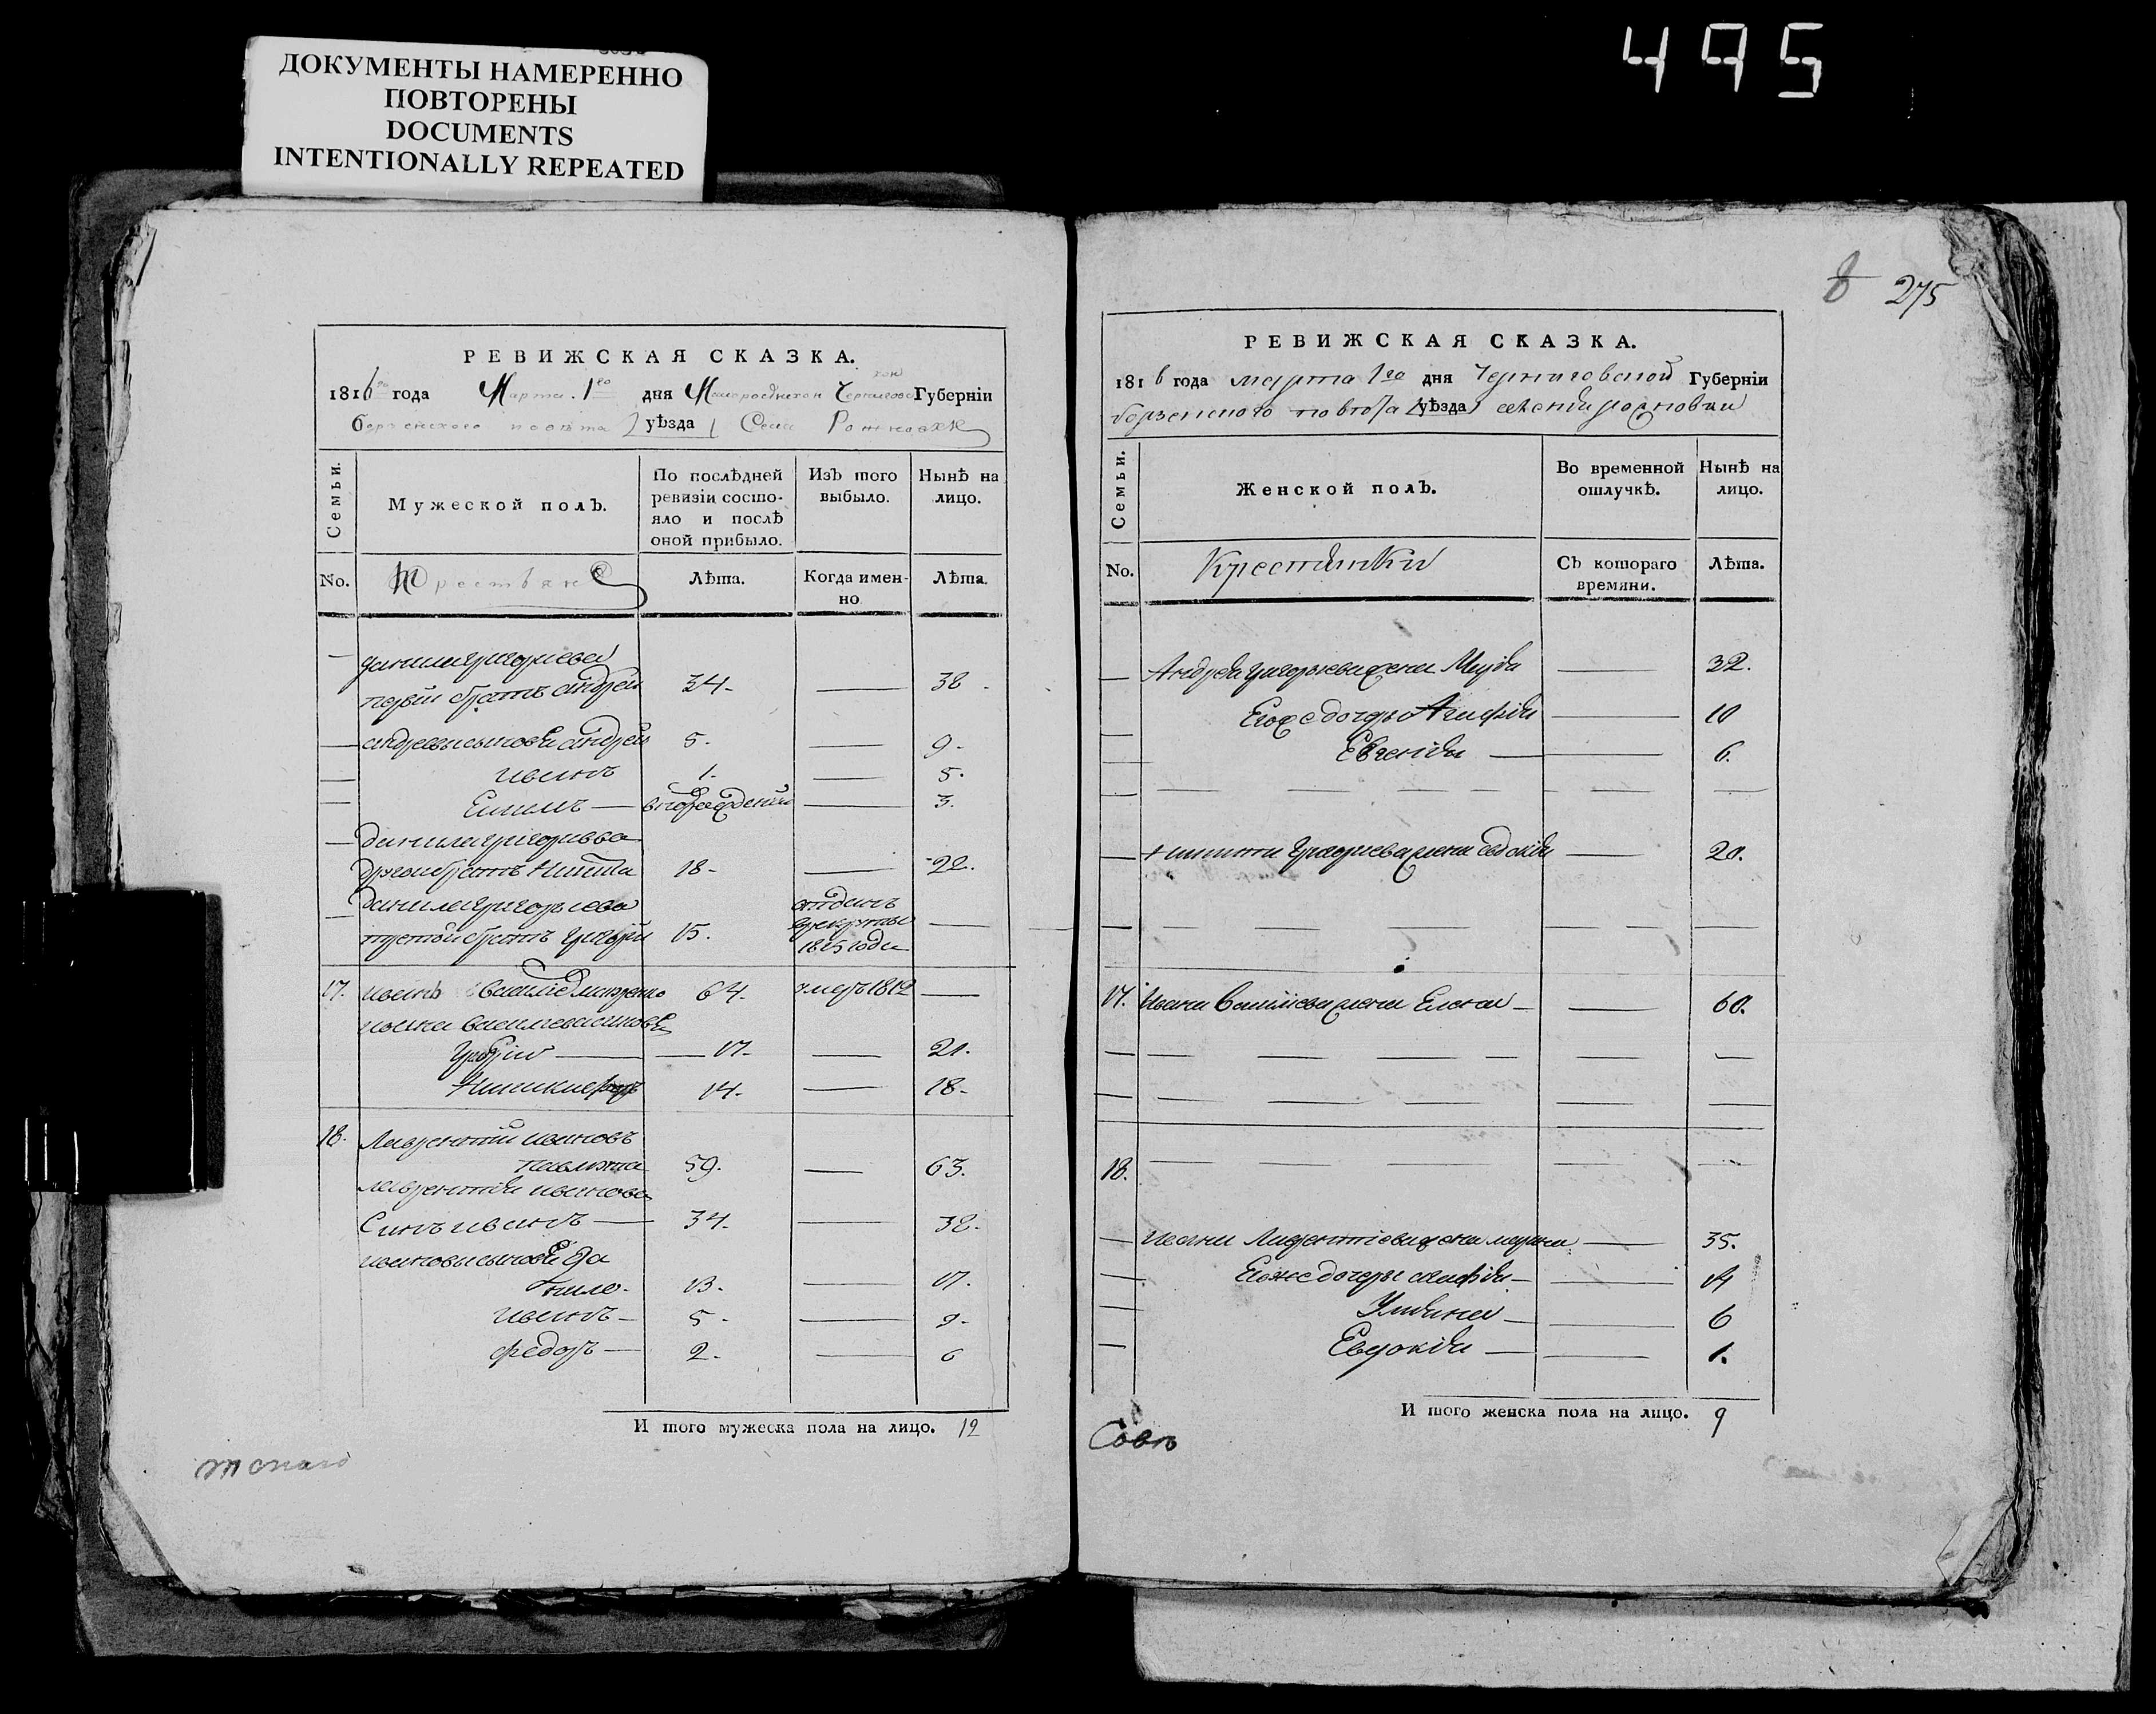 495
ДОКУМЕНТЫ НАМЕРЕННО
ПОВТОРЕНЫ
DOCUMENTS
INTENTIONALLY REPEATED
РЕВИЖСКАЯ СКАЗКА.
1816го года Марта 1го дня Малоросійской Черниговской Губерніи
повѣта уѣзда
Семьи.
Мужеской полъ.
По послѣдней
ревизіи состо-
яло и послѣ
оной прибыло.
Изъ того
выбыло.
Нынѣ на
лицо.
No.
Крестьяне
Лѣта.
Когда имен-
но
Лѣта.
данила григориева
первій братъ андрей 34. — 38.
андреевы синовя андрей 5. — 9.
иванъ 1. — 5.
Ефимъ — — 3.
данила григориева
другои братъ Никита 18. — 22.
данила григориева отданъ
третой братъ григорій 15. в рекруты —
1815 года
17. иванъ василіев 64. умеръ 1812 —
ивана василева синовя
григорій — 17. — 21.
14. — 18.
18. Лаврентій ивановъ
59. — 63.
лаврентія иванова
Синъ иванъ — 34. — 38.
ивановы сыновя да
нило. 13. — 17.
иванъ — 5. — 9.
федоръ — 2. — 6
И того мужеска пола на лицо. 12
8 275
РЕВИЖСКАЯ СКАЗКА.
1816 года марта 1го дня Черниговской Губерніи
повѣта уѣзда
Семьи.
Женской полъ.
Во временной
отлучкѣ.
Нынѣ на
лицо.
No.
Крестянки
Съ котораго
времяни.
Лѣта.
Андрея григорьева жена Марія — 32.
Егоже дочеры Агафія — 10
Евгенія — — 6.
Никиты григориева жена евдокія — 20.
17. Ивана василіева жена Елена — — 60.
18.
Ивана Лаврентіева жена марина — 35.
Егоже дочеры агафія — — 14
Уліяна — — 6
Евдокія — — 1.
И того женска пола на лицо. 9